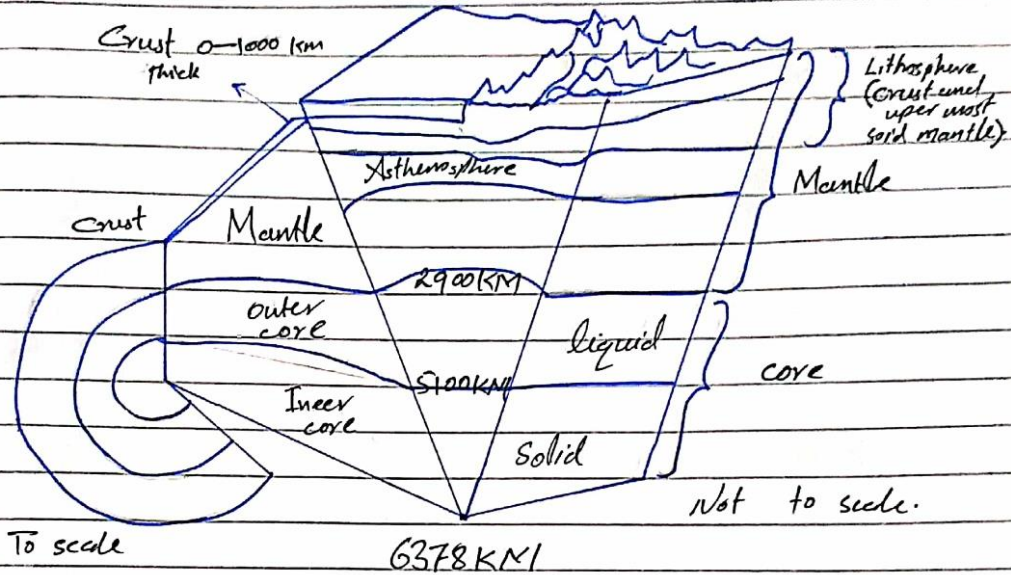 Crust 0-1000 KM
thick
Lithosphere
(crust and
uper most
soid mantle).
Asthenosphere
Mantle
Crust
Mantle
2900KM
outer
core
liquid
core
5100KM
Ineer
core
Solid
Not to scale.
To scale
6378KM